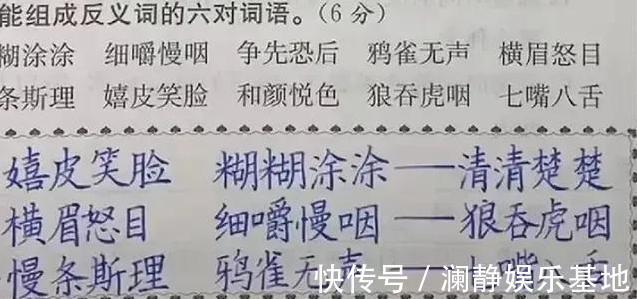 能组成反义词的六对词语。(6分)
糊涂涂 细嚼慢咽 争先恐后 鸦雀无声 横眉怒目
条斯理 嬉皮笑脸 和颜悦色 狼吞虎咽 七嘴八舌
嬉皮笑脸 糊糊涂涂——清清楚楚
横眉怒目 细嚼慢咽——狼吞虎咽
慢条斯理 鸦雀无声——嘴八舌
快传号/澜静娱乐基地